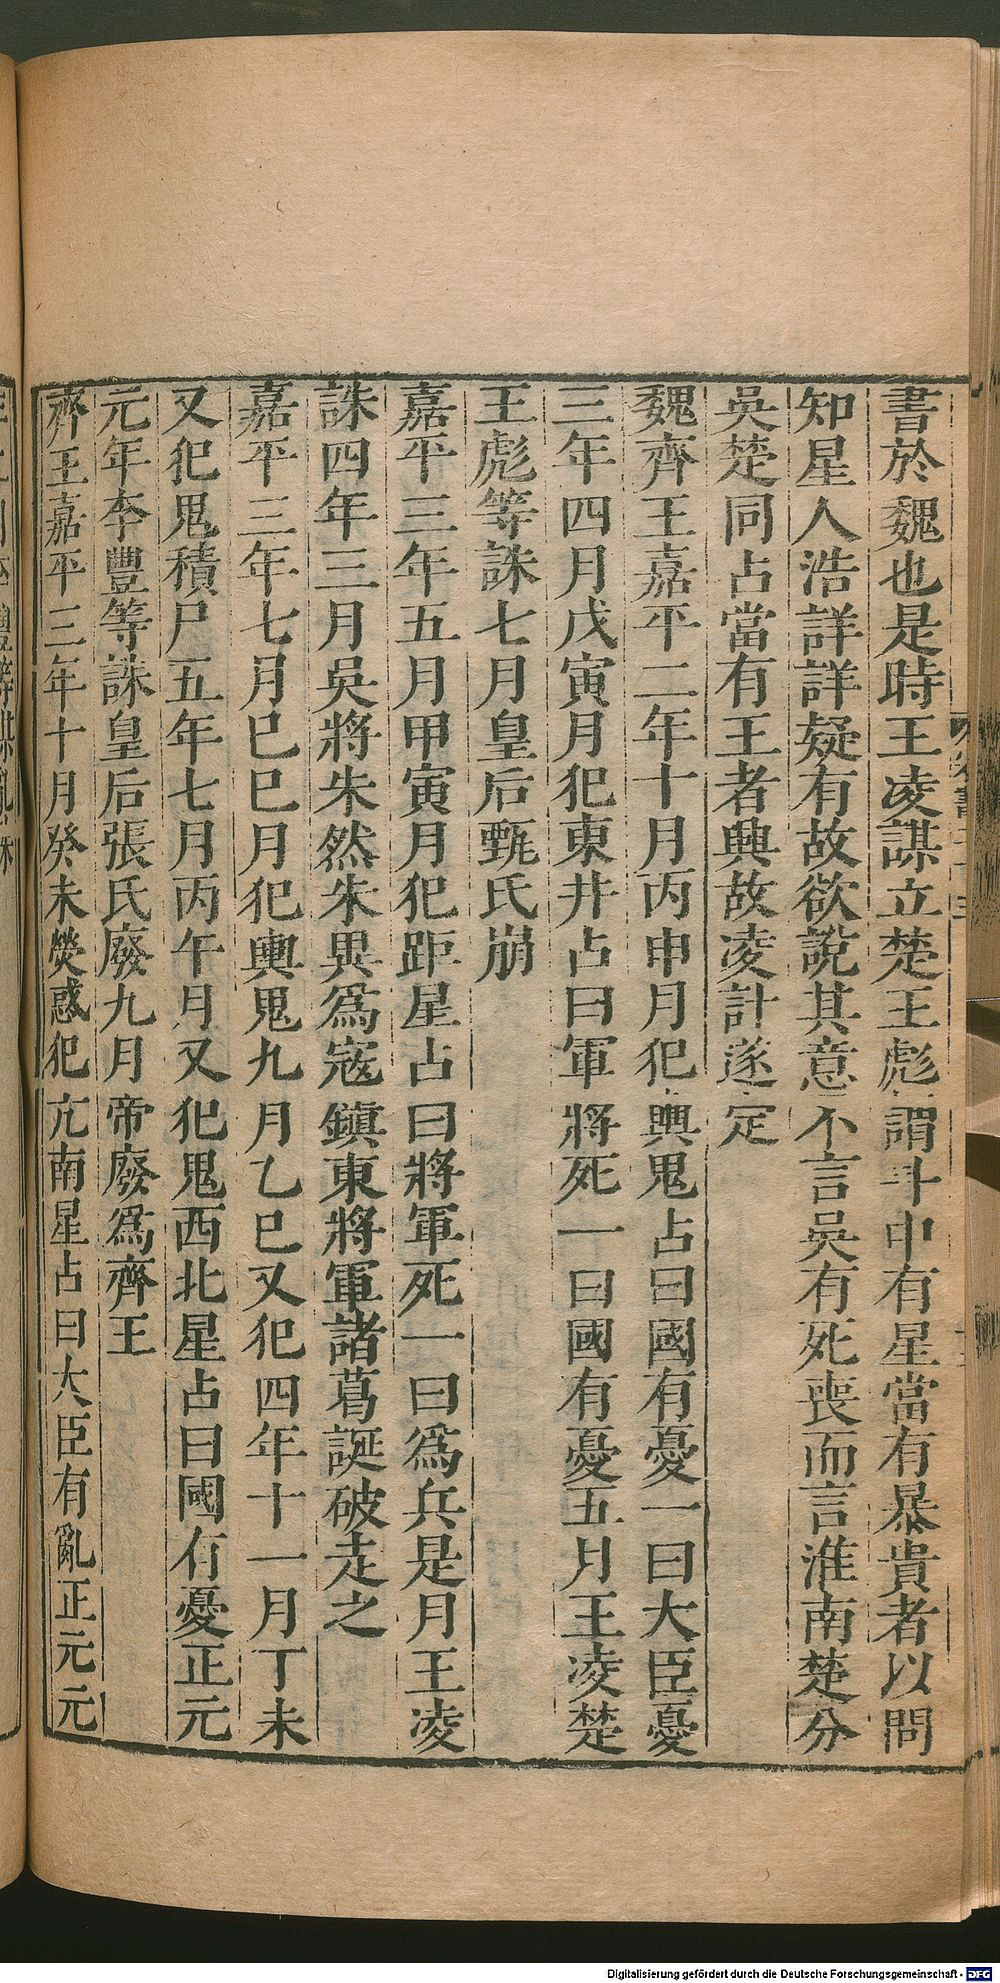 書於魏也是時王凌謀立楚王彪謂斗中有星當有暴貴者以問
知星人浩詳詳疑有故欲說其意不言吳有死喪而言淮南楚分
吳楚同占當有王者興故凌計遂定
魏齊王嘉平二年十月丙申月犯輿鬼占曰國有憂一曰大臣憂
三年四月戊寅月犯東井占曰軍將死一曰國有憂五月王凌楚
王彪等誅七月皇后甄氏崩
嘉平三年五月甲寅月犯距星占曰將軍死一曰爲兵是月王凌
誅四年三月吳將朱然朱異爲寇鎮東將軍諸葛誕破走之
嘉平三年七月巳巳月犯輿鬼九月乙巳又犯四年十一月丁未
又犯鬼積尸五年七月丙午月又犯鬼西北星占曰國有憂正元
元年李豐等誅皇后張氏廢九月帝廢爲齊王
齊王嘉平三年十月癸未熒惑犯亢南星占曰大臣有亂正元元
Digitalisierung gefördert durch die Deutsche Forschungsgemeinschaft - DFG